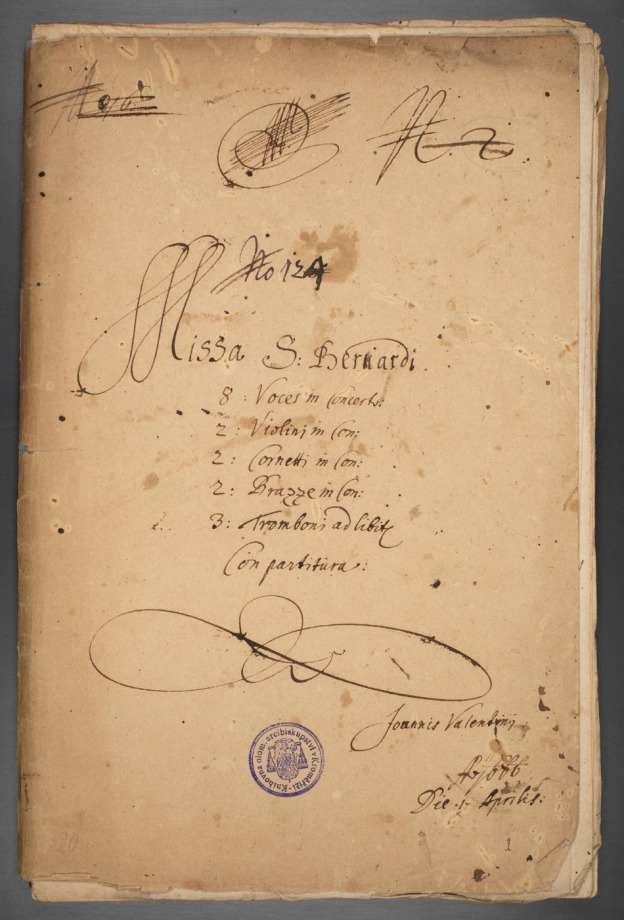 N 2
No 124
Missa S: Bernardi.
8: Voces in Concerto:
2: Violinj in Con:
2: Cornetti in Con:
2: Brazze in Con:
3: Tromboni ad libit
Con partitura:
Joannis Valentinj
Die 1 Aprilis:
Knihovna olom. arcibiskupství v Kroměříži
20
1